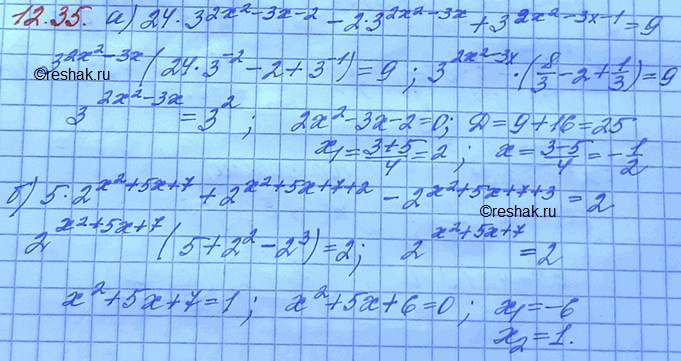 12.35. а) 24·3^(2x²-3x-2) - 2·3^(2x²-3x) + 3^(2x²-3x-1) = 9
3^(2x²-3x) (24·3^(-2) - 2 + 3^(-1)) = 9; 3^(2x²-3x)·(8/3 - 2 + 1/3) = 9
©reshak.ru
3^(2x²-3x) = 3²; 2x²-3x-2=0; D=9+16=25
x₁ = (3+5)/4 = 2; x = (3-5)/4 = -1/2
б) 5·2^(x²+5x+7) + 2^(x²+5x+7+2) - 2^(x²+5x+7+3) = 2
©reshak.ru
2^(x²+5x+7) (5+2²-2³)=2; 2^(x²+5x+7) = 2
x²+5x+7=1; x²+5x+6=0; x₁=-6
x₂=1.